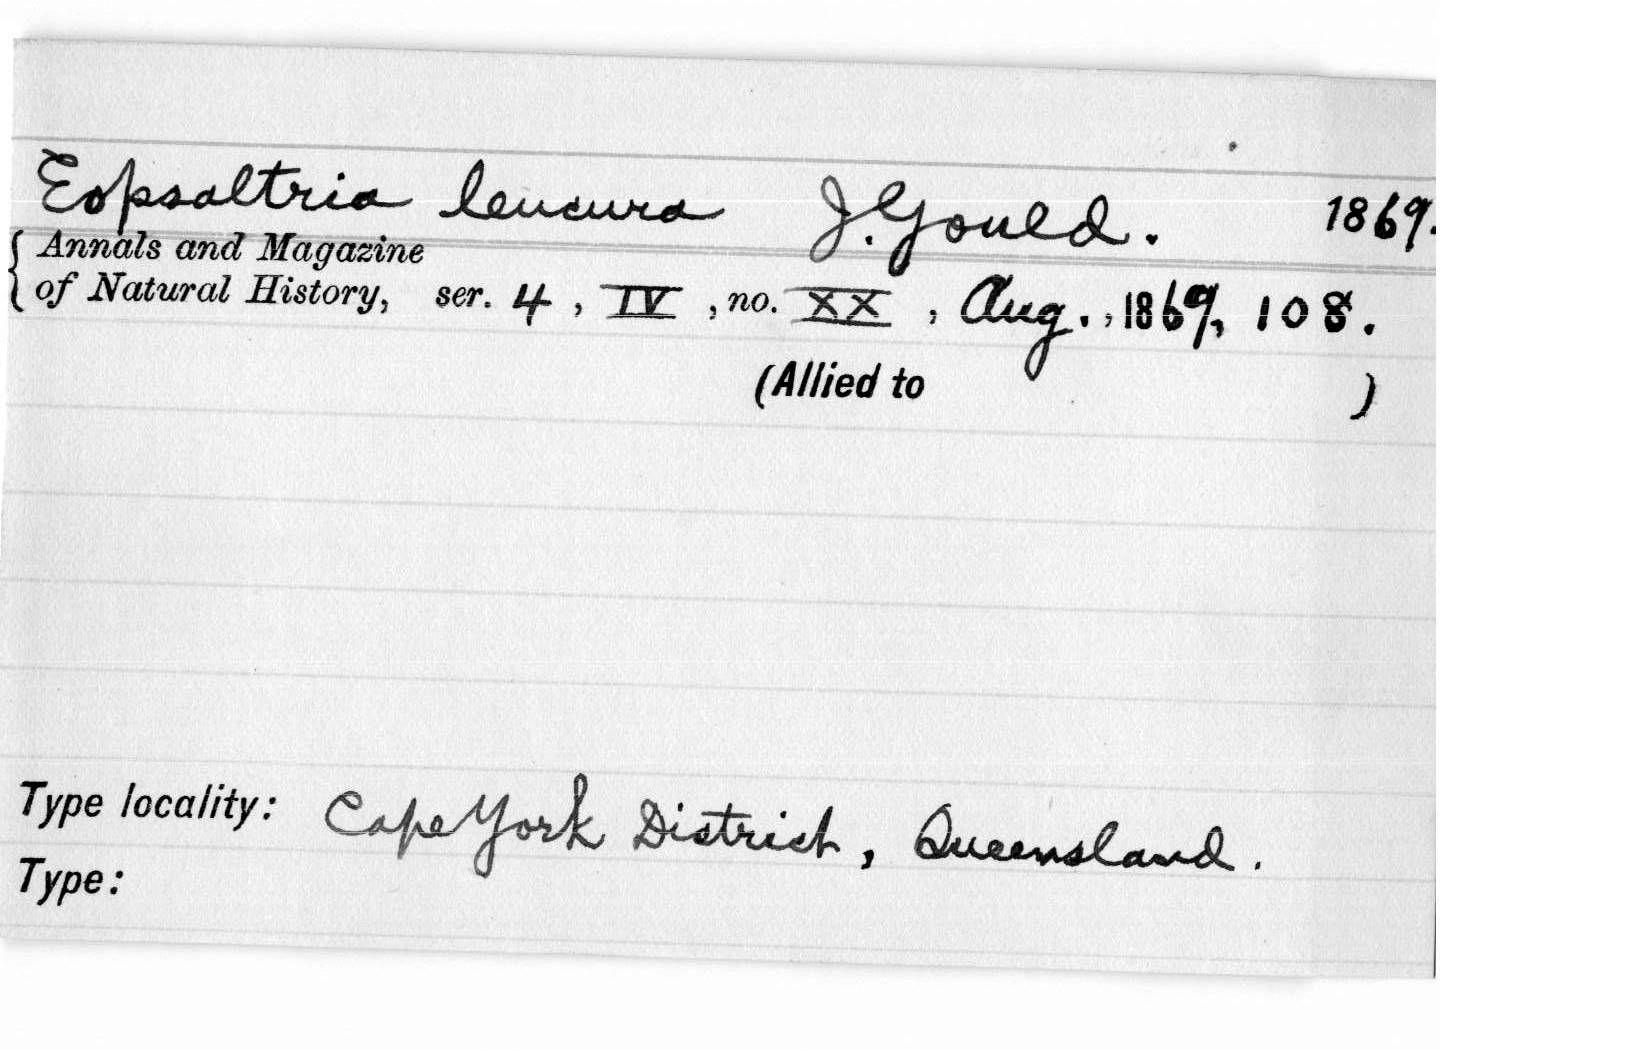 Eopsaltria leucura J. Gould. 1869.
{ Annals and Magazine
of Natural History, ser. 4, IV, no. XX, Aug., 1869, 108.
(Allied to )
Type locality: Cape York District, Queensland.
Type: